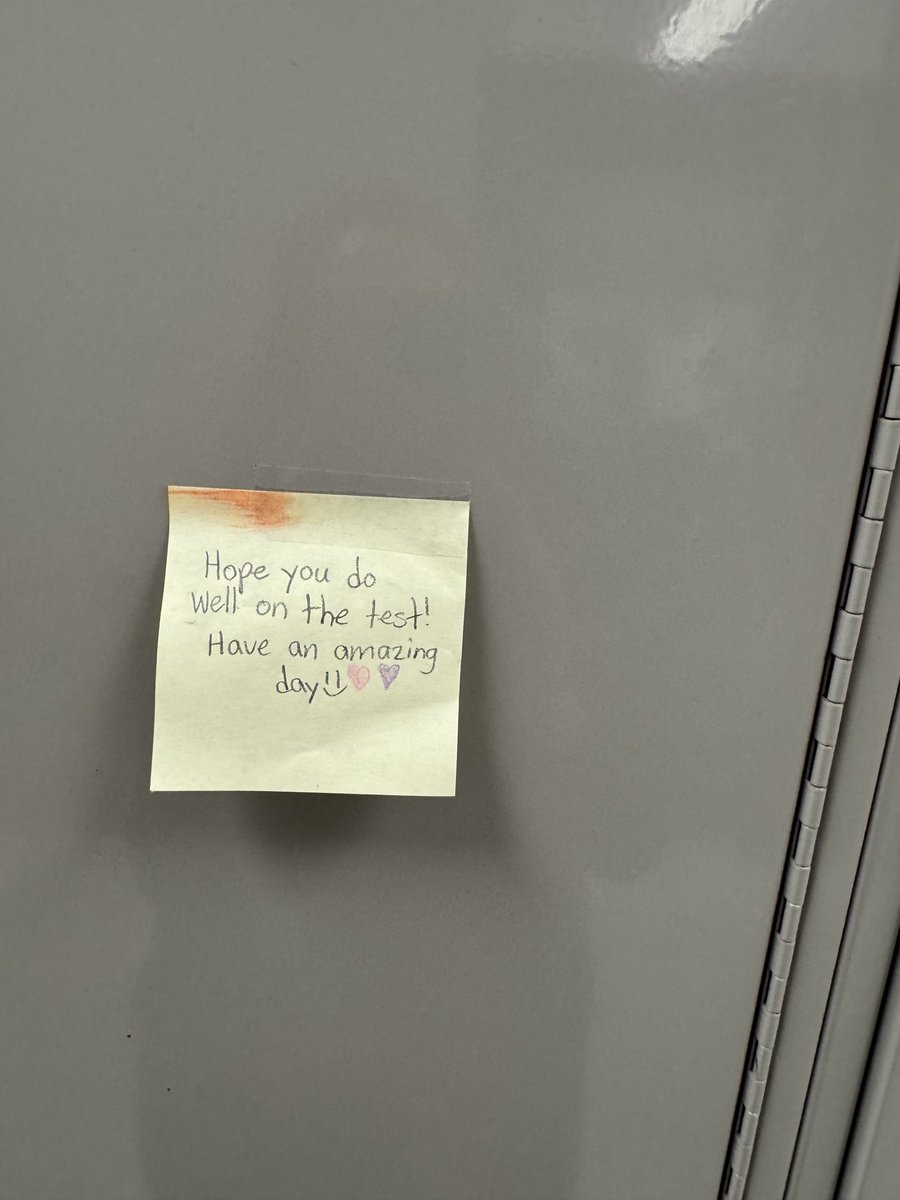 Hope you do
Well on the test!
Have an amazing
day!